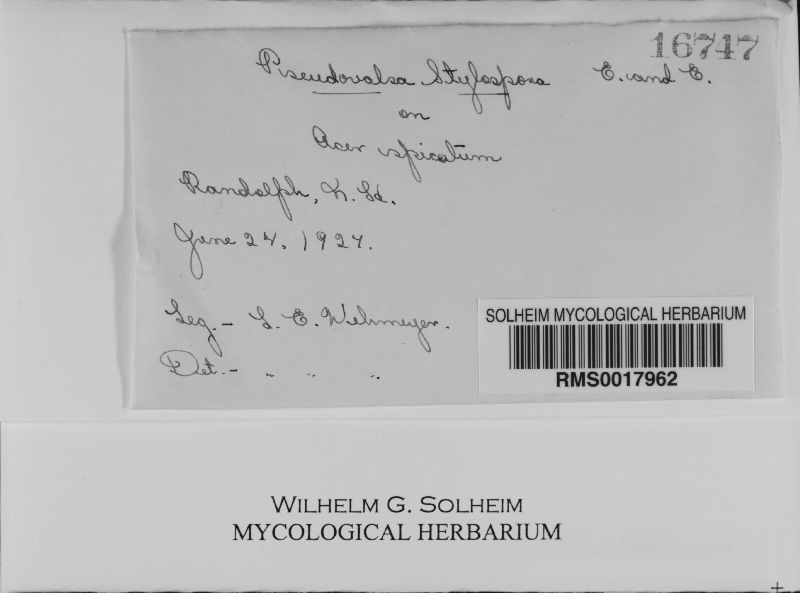 16747
Pseudovalsa Stylospora E. and E.
on
Acer spicatum
Randolph, N. H.
June 24, 1927.
Leg. - L. E. Wehmeyer.
Det. - " " "
SOLHEIM MYCOLOGICAL HERBARIUM
RMS0017962
WILHELM G. SOLHEIM
MYCOLOGICAL HERBARIUM